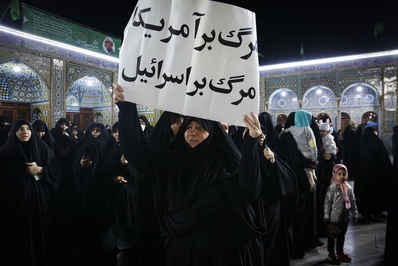 مرگ برآمریکا
مرگ براسرائیل